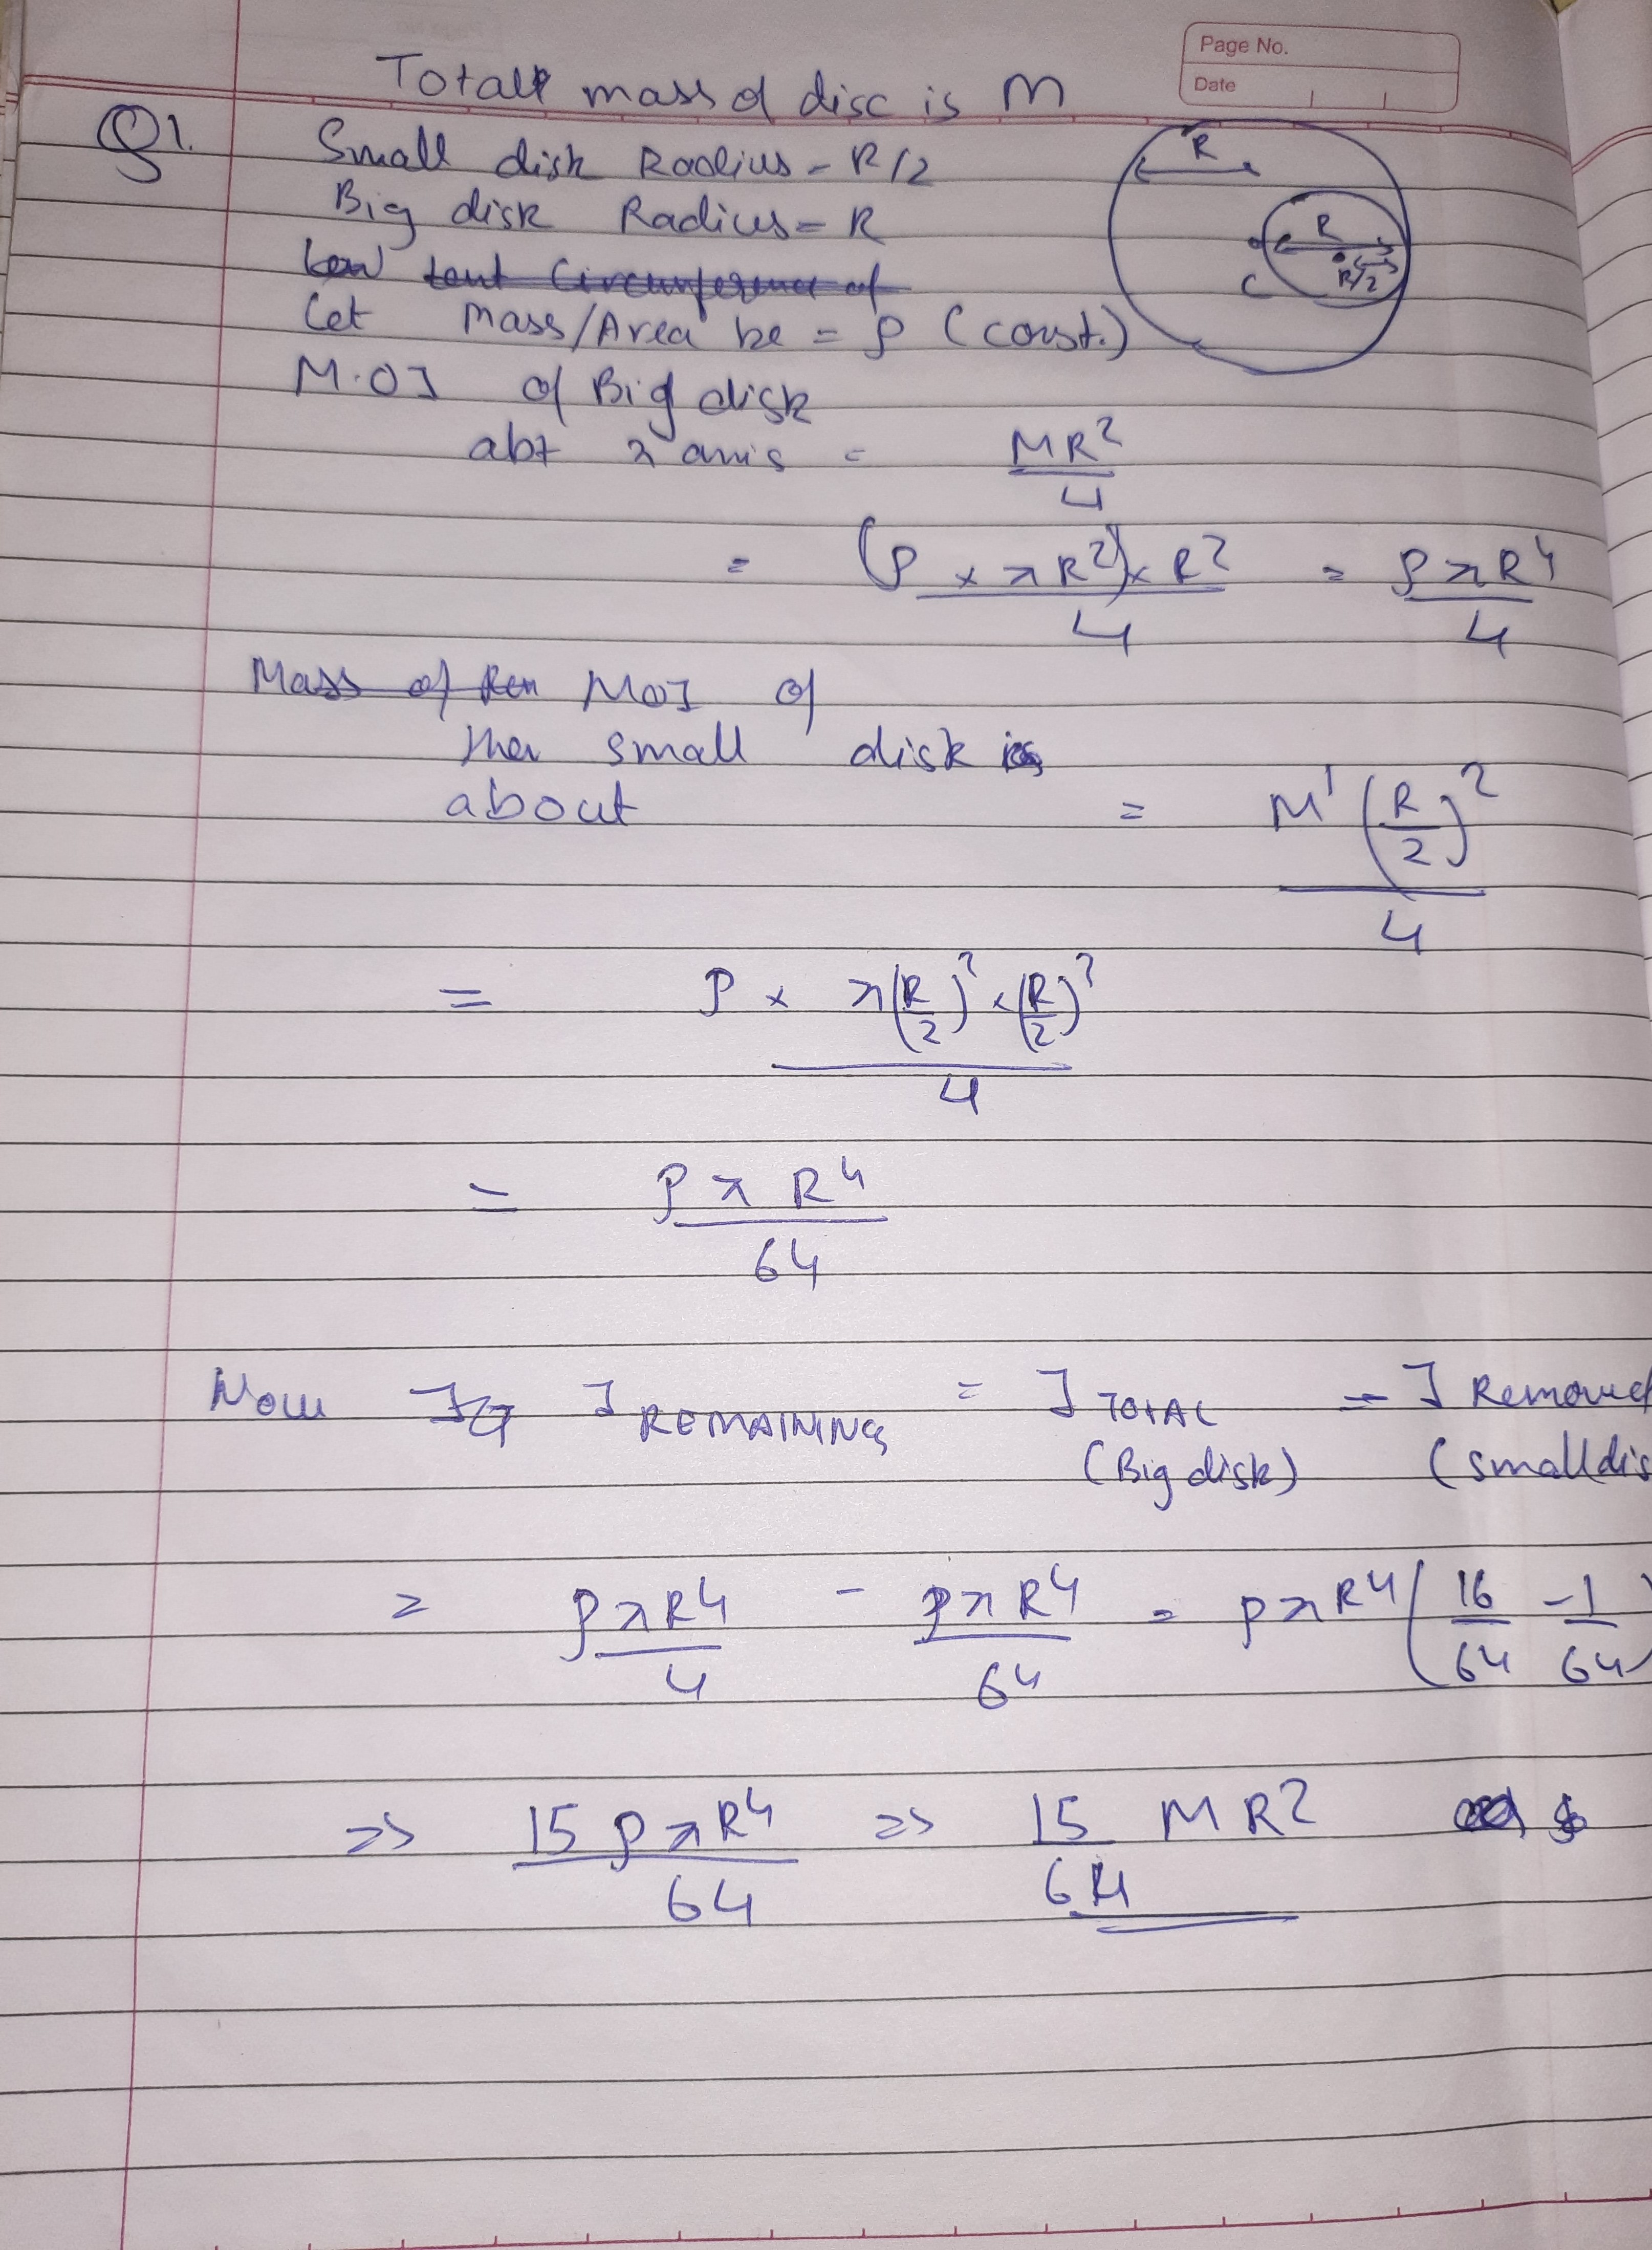 Page No.
Date
Total mass of disc is M
Q1. Small disk Radius - R/2
Big disk Radius = R
Let Mass/Area be = ρ (const.)
M.OI of Big disk
abt x axis = MR²/4
= (ρ × πR²) × R²/4 = ρπR⁴/4
Mass of Rem MOI of
the small disk
about = M' (R/2)²/4
= ρ × π(R/2)² × (R/2)²/4
= ρπR⁴/64
Now I REMAINING = I TOTAL - I Removed
(Big disk) (small dis
= ρπR⁴/4 - ρπR⁴/64 = ρπR⁴(16/64 - 1/64)
=> 15ρπR⁴/64 => 15/64 MR²
R
R
R/2
C